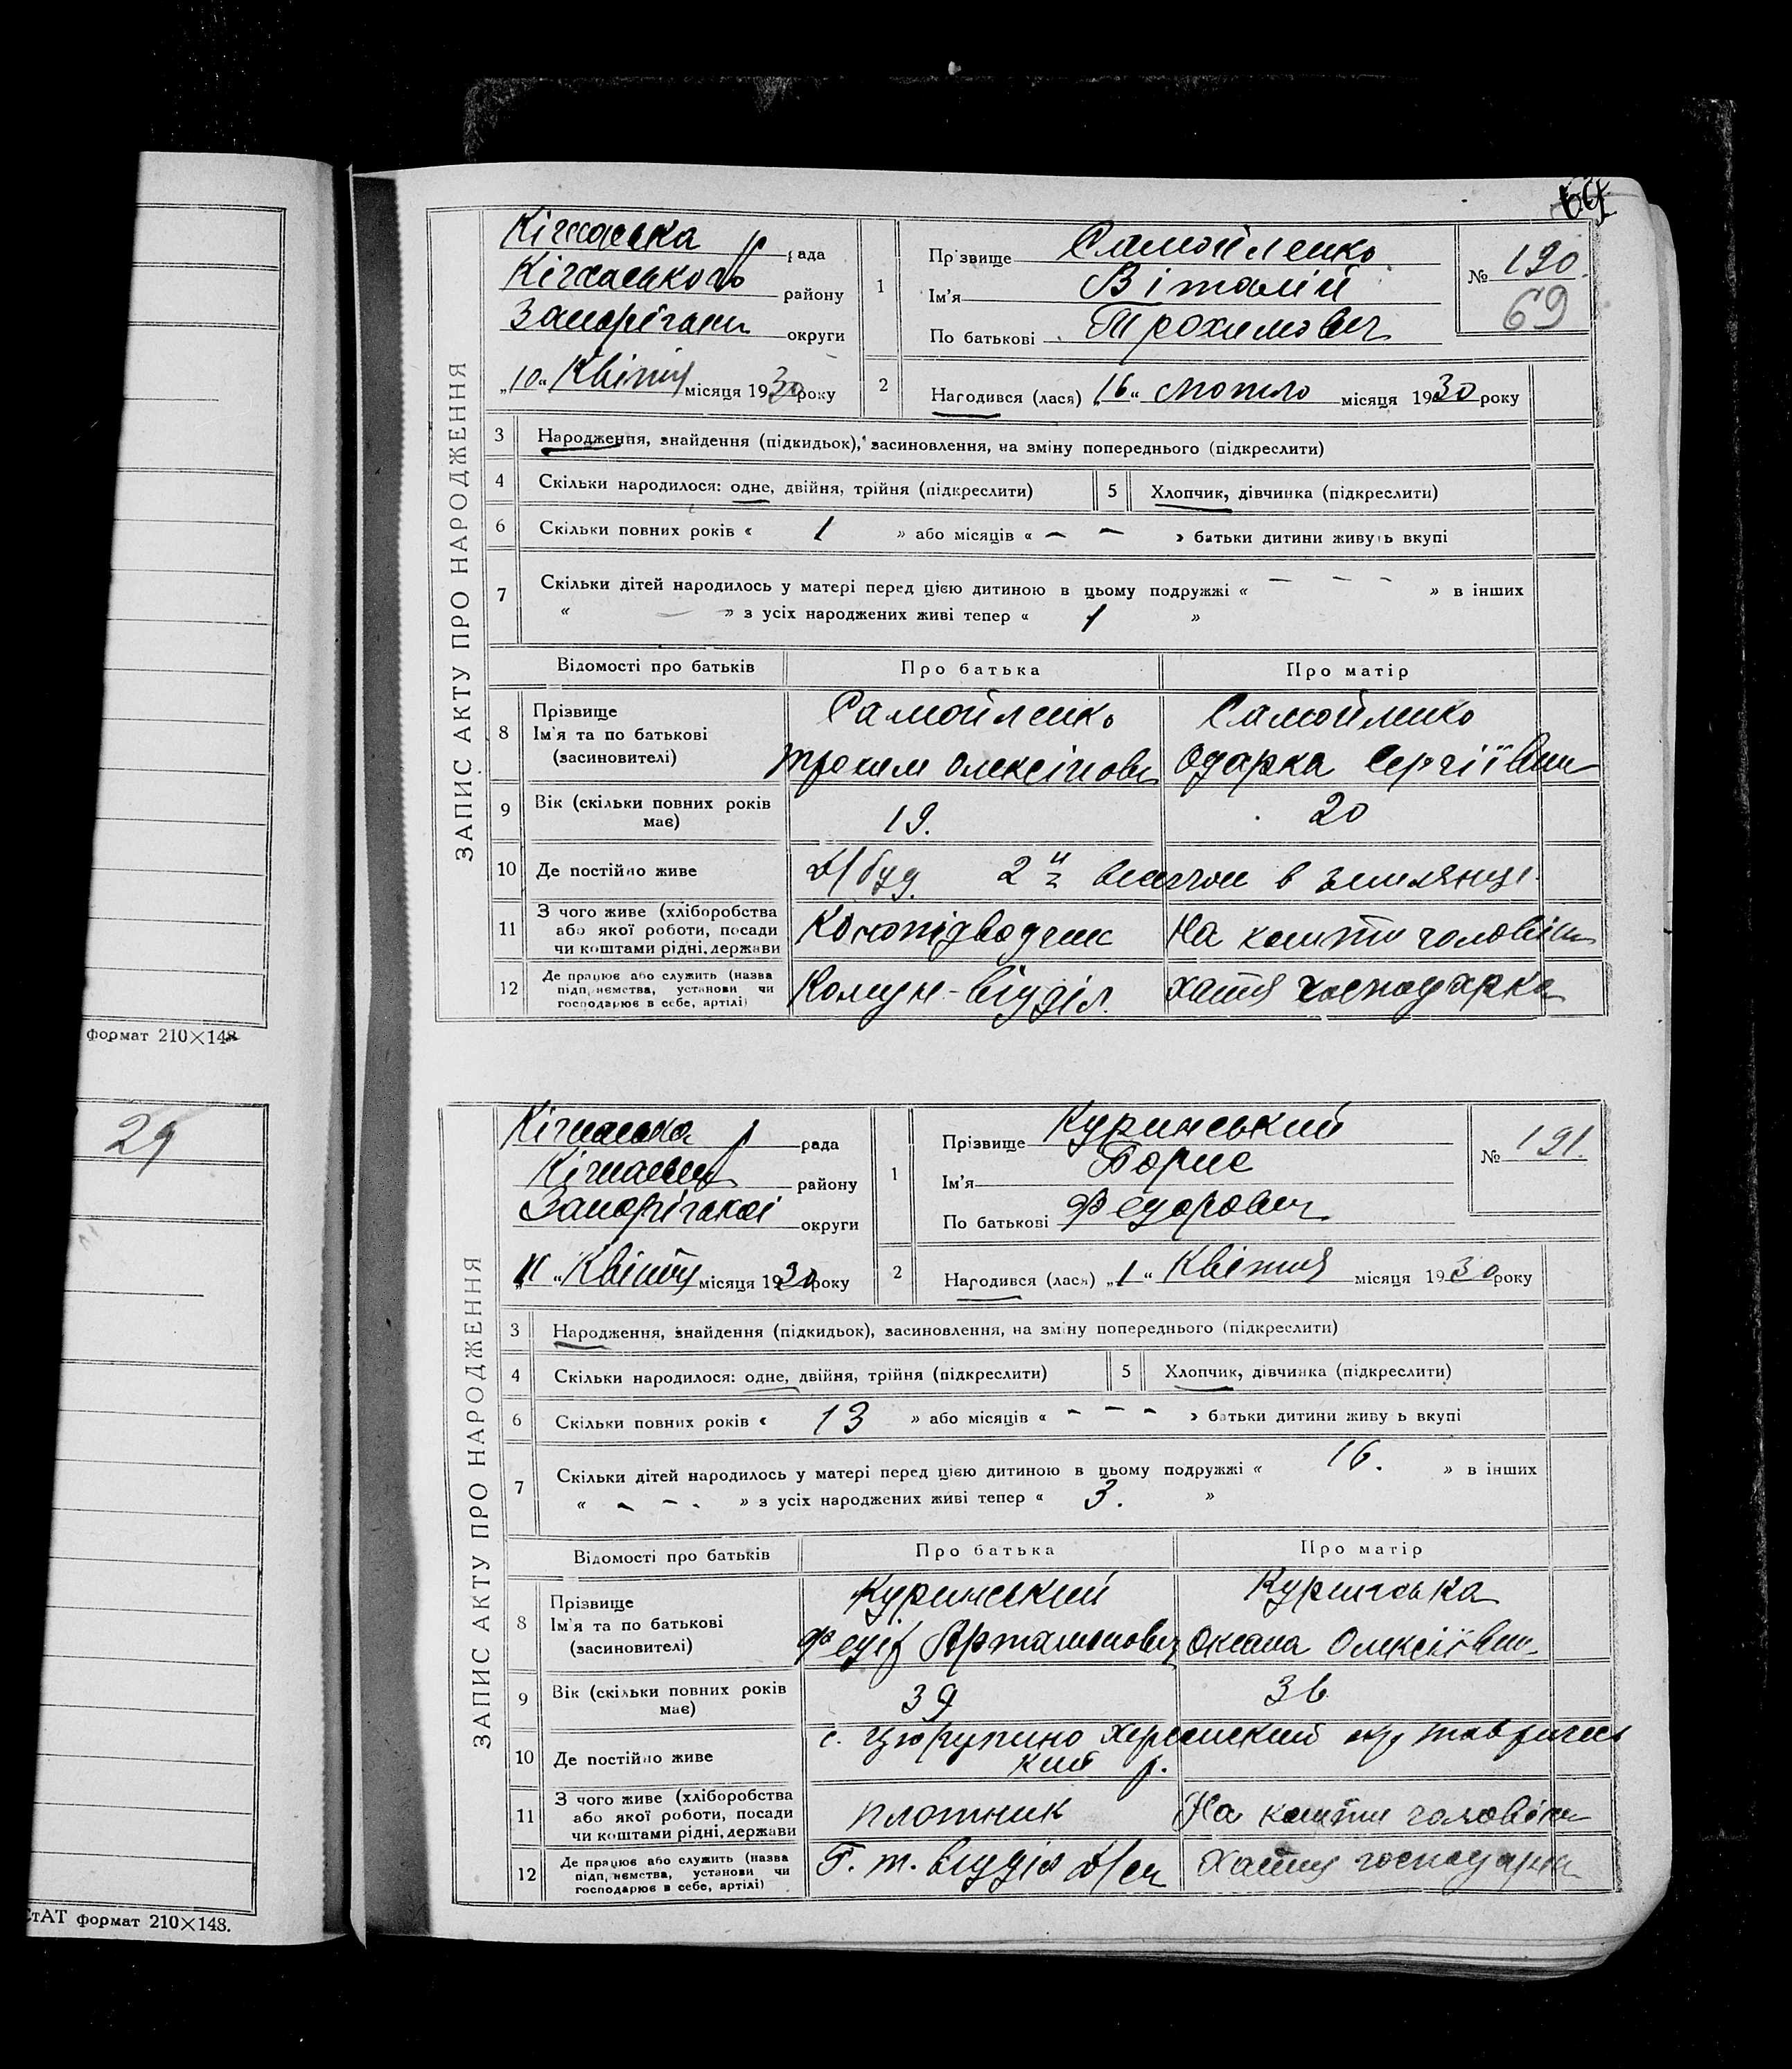 69
ЗАПИС АКТУ ПРО НАРОДЖЕННЯ
Кічкаська р рада
Кічкаського району
Запоріжськ округи
„10“ Квітня місяця 1930 року
1
Прізвище Самойленко
Ім'я Віталій
По батькові Трохимович
№ 190
69
2
Народився (лася) „16“ лютого місяця 1930 року
3 Народження, знайдення (підкидьок), засиновлення, на зміну попереднього (підкреслити)
4 Скільки народилося: одне, двійня, трійня (підкреслити) 5 Хлопчик, дівчинка (підкреслити)
6 Скільки повних років « 1 » або місяців « – – » батьки дитини живуть вкупі
7 Скільки дітей народилось у матері перед цією дитиною в цьому подружжі « – – – » в інших
« – » з усіх народжених живі тепер « 1 »
Відомості про батьків Про батька Про матір
8 Прізвище
Ім'я та по батькові
(засиновителі)
Самойленко
Трохим Олексійови
Самойленко
Одарка Сергіївна
9 Вік (скільки повних років має) 19. 20
10 Де постійно живе Д/буд. 2й в землянці
11 З чого живе (хліборобства
або якої роботи, посади
чи коштами рідні, держави
Конопідводчик
На кошти чоловіка
12 Де працює або служить (назва
підприємства, установи чи
господарює в себе, артілі)
Комун-відділ.
хатня господарка
формат 210×148
29
ЗАПИС АКТУ ПРО НАРОДЖЕННЯ
Кічкаська р рада
Кічкаськ району
Запоріжської округи
„11“ Квітня місяця 1930 року
1
Прізвище Куринський
Ім'я Борис
По батькові Федорович
№ 191.
2
Народився (лася) „1“ Квітня місяця 1930 року
3 Народження, знайдення (підкидьок), засиновлення, на зміну попереднього (підкреслити)
4 Скільки народилося: одне, двійня, трійня (підкреслити) 5 Хлопчик, дівчинка (підкреслити)
6 Скільки повних років « 13 » або місяців « – – – » батьки дитини живуть вкупі
7 Скільки дітей народилось у матері перед цією дитиною в цьому подружжі « 16. » в інших
« – – – » з усіх народжених живі тепер « 3. »
Відомості про батьків Про батька Про матір
8 Прізвище
Ім'я та по батькові
(засиновителі)
Куринський
Федір Артамонович
Куринська
Оксана Олексіївна
9 Вік (скільки повних років має) 39 36
10 Де постійно живе с. Цюрупино Херсонский окр Тавричес
кий р.
11 З чого живе (хліборобства
або якої роботи, посади
чи коштами рідні, держави
плотник
На кошти чоловіка
12 Де працює або служить (назва
підприємства, установи чи
господарює в себе, артілі)
Г. т. відділ
Хатня господарка
СтАТ формат 210×148.